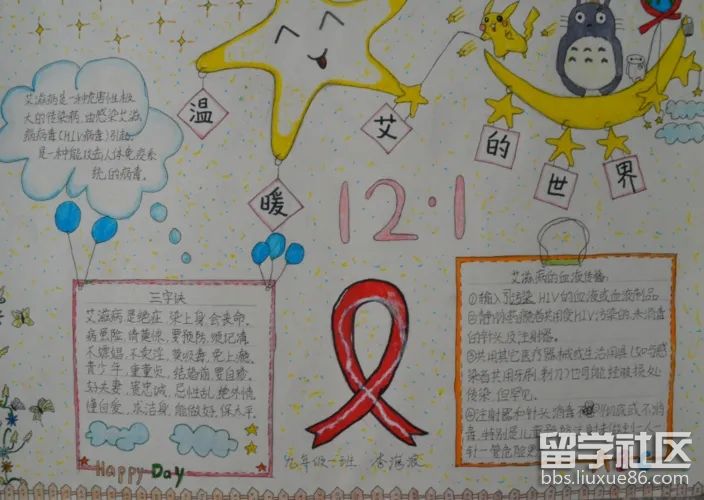 温
暖
艾
的
世
界
12·1
艾滋病是一种危害性极
大的传染病,由感染艾滋
病病毒(HIV病毒)引起,
是一种能攻击人体免疫系
统的病毒。
三字诀
艾滋病是绝症 染上身,会丧命,
病愚险,情莫惊,要预防,须记清,
不嫖娼,不卖淫,莫吸毒,免上瘾,
青少年,重童贞,结婚前,要自珍,
好夫妻,贵忠诚,忌性乱,绝外情,
懂自爱,
能做好,保太平。
Happy Day
九年级一班
艾滋病的血液传播:
①输入 污染HIV的血液或血液制品
②静
共用受HIV污染的,未消毒
的针头及注射器。
③共用其它医疗器械或生活用具(如与感
染者共用牙刷,剃刀)也可能经破损处
传染,但罕见。
④注射器和针头消毒 不彻底或不消
毒,特别是儿
一人一
针一管危险更
留学社区
bbs.liuxue86.com